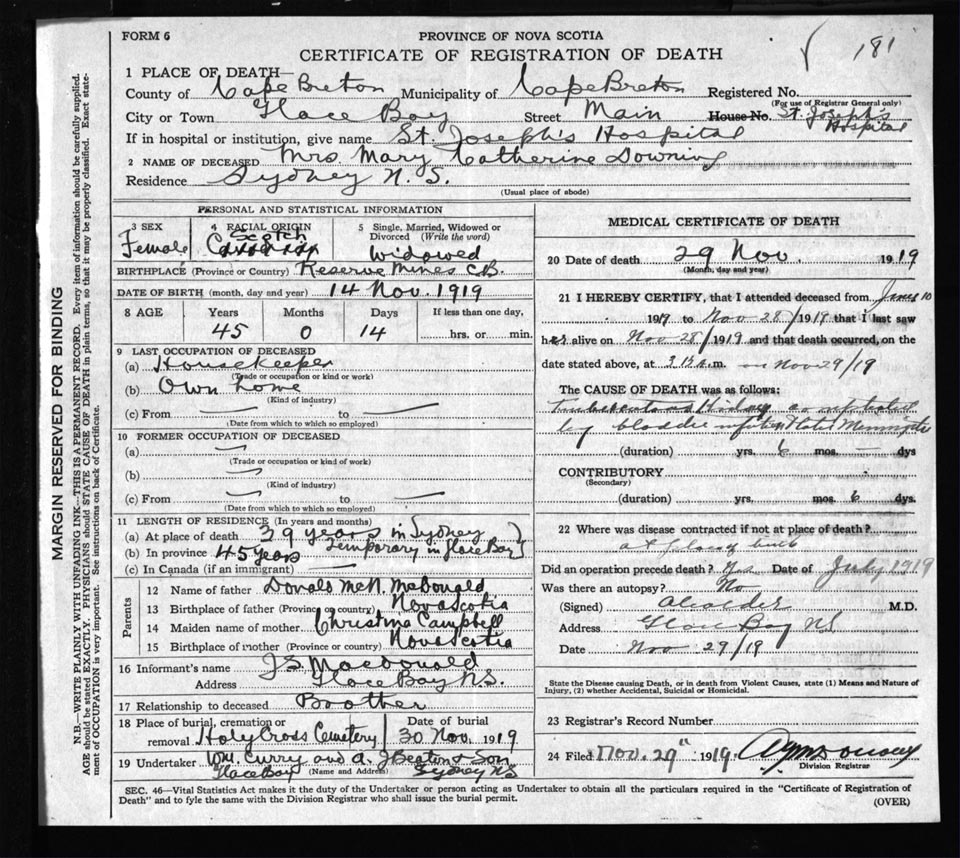 FORM 6
PROVINCE OF NOVA SCOTIA
CERTIFICATE OF REGISTRATION OF DEATH
181
1 PLACE OF DEATH—
County of Cape Breton Municipality of Cape Breton Registered No.
(For use of Registrar General only)
City or Town Glace Bay Street Main House No. St. Joseph's Hospital
If in hospital or institution, give name St. Joseph's Hospital
2 NAME OF DECEASED Mrs. Mary Catherine Downing
Residence Sydney N.S.
(Usual place of abode)
PERSONAL AND STATISTICAL INFORMATION
3 SEX 4 RACIAL ORIGIN 5 Single, Married, Widowed or Divorced (Write the word)
Female Scotch Canadian Widowed
BIRTHPLACE (Province or Country) Reserve Mines C.B.
DATE OF BIRTH (month, day and year) 14 Nov. 1919
8 AGE Years Months Days If less than one day,
45 0 14 hrs. or min.
9 LAST OCCUPATION OF DECEASED
(a) Housekeeper
(Trade or occupation or kind or work)
(b) Own home
(Kind of industry)
(c) From to
(Date from which to which so employed)
10 FORMER OCCUPATION OF DECEASED
(a)
(Trade or occupation or kind of work)
(b)
(Kind of industry)
(c) From to
(Date from which to which so employed)
11 LENGTH OF RESIDENCE (In years and months)
(a) At place of death 39 years in Sydney
(b) In province 45 Years temporary in Glace Bay
(c) In Canada (if an immigrant)
Parents
12 Name of father Donald McN. McDonald
13 Birthplace of father (Province or country) Nova Scotia
14 Maiden name of mother Christina Campbell
15 Birthplace of mother (Province or country) Nova Scotia
16 Informant's name J.S. Macdonald
Address Glace Bay N.S.
17 Relationship to deceased Brother
18 Place of burial, cremation or removal Holy Cross Cemetery Date of burial 30 Nov. 1919
19 Undertaker Wm. Curry and A. J. Beaton & Son
Glace Bay (Name and Address) Sydney N.S
MEDICAL CERTIFICATE OF DEATH
20 Date of death 29 Nov. 1919
(Month, day and year)
21 I HEREBY CERTIFY, that I attended deceased from June 10
1919 to Nov 28/1919 that I last saw
her alive on Nov 28/1919 and that death occurred, on the
date stated above, at a.m. on Nov 29/19
The CAUSE OF DEATH was as follows:
Tuberculous Kidney complicated
by bladder infection Later Meningitis
(duration) yrs. 6 mos. — dys
CONTRIBUTORY
(Secondary)
(duration) yrs. mos. 6 dys.
22 Where was disease contracted if not at place of death?
at place
Did an operation precede death? Yes Date of July 1919
Was there an autopsy? No
(Signed) M.D.
Address Glace Bay N.S
Date Nov 29/19
State the Disease causing Death, or in death from Violent Causes, state (1) Means and Nature of
Injury, (2) whether Accidental, Suicidal or Homicidal.
23 Registrar's Record Number
24 Filed Nov. 29" 1919.
Division Registrar
SEC. 46—Vital Statistics Act makes it the duty of the Undertaker or person acting as Undertaker to obtain all the particulars required in the "Certificate of Registration of
Death" and to fyle the same with the Division Registrar who shall issue the burial permit.
(OVER)
MARGIN RESERVED FOR BINDING
N.B.—WRITE PLAINLY WITH UNFADING INK—THIS IS A PERMANENT RECORD. Every item of information should be carefully supplied.
AGE should be stated EXACTLY. PHYSICIANS should STATE CAUSE OF DEATH in plain terms, so that it may be properly classified. Exact state-
ment of OCCUPATION is very important. See instructions on back of Certificate.